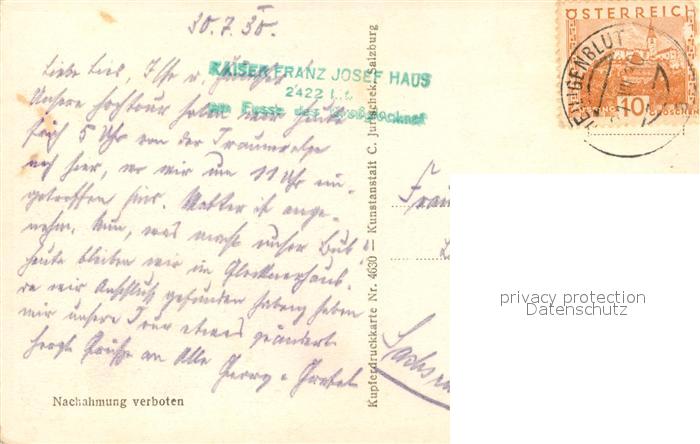 30.7.30.
Liebe Lies, Ilse u.
KAISER FRANZ JOSEF HAUS
2422
am Fusse des Großglockner
Unsere Hochtour haben wir heute
früh 5 Uhr von der
nach hier, wo wir um 11 Uhr ein-
getroffen sind. Wetter ist ange-
nehm. Nun, was macht unser Bub?
Heute bleiben wir im Glocknerhaus.
Da wir Anschluß gefunden haben, haben
wir unsere Tour etwas geändert
Herzl. Grüße an Alle Georg u
Nachahmung verboten
Kupferdruckkarte Nr. 4630 — Kunstanstalt C. Jurischek, Salzburg
ÖSTERREICH
10
HEILIGENBLUT
Sachsen
privacy protection
Datenschutz